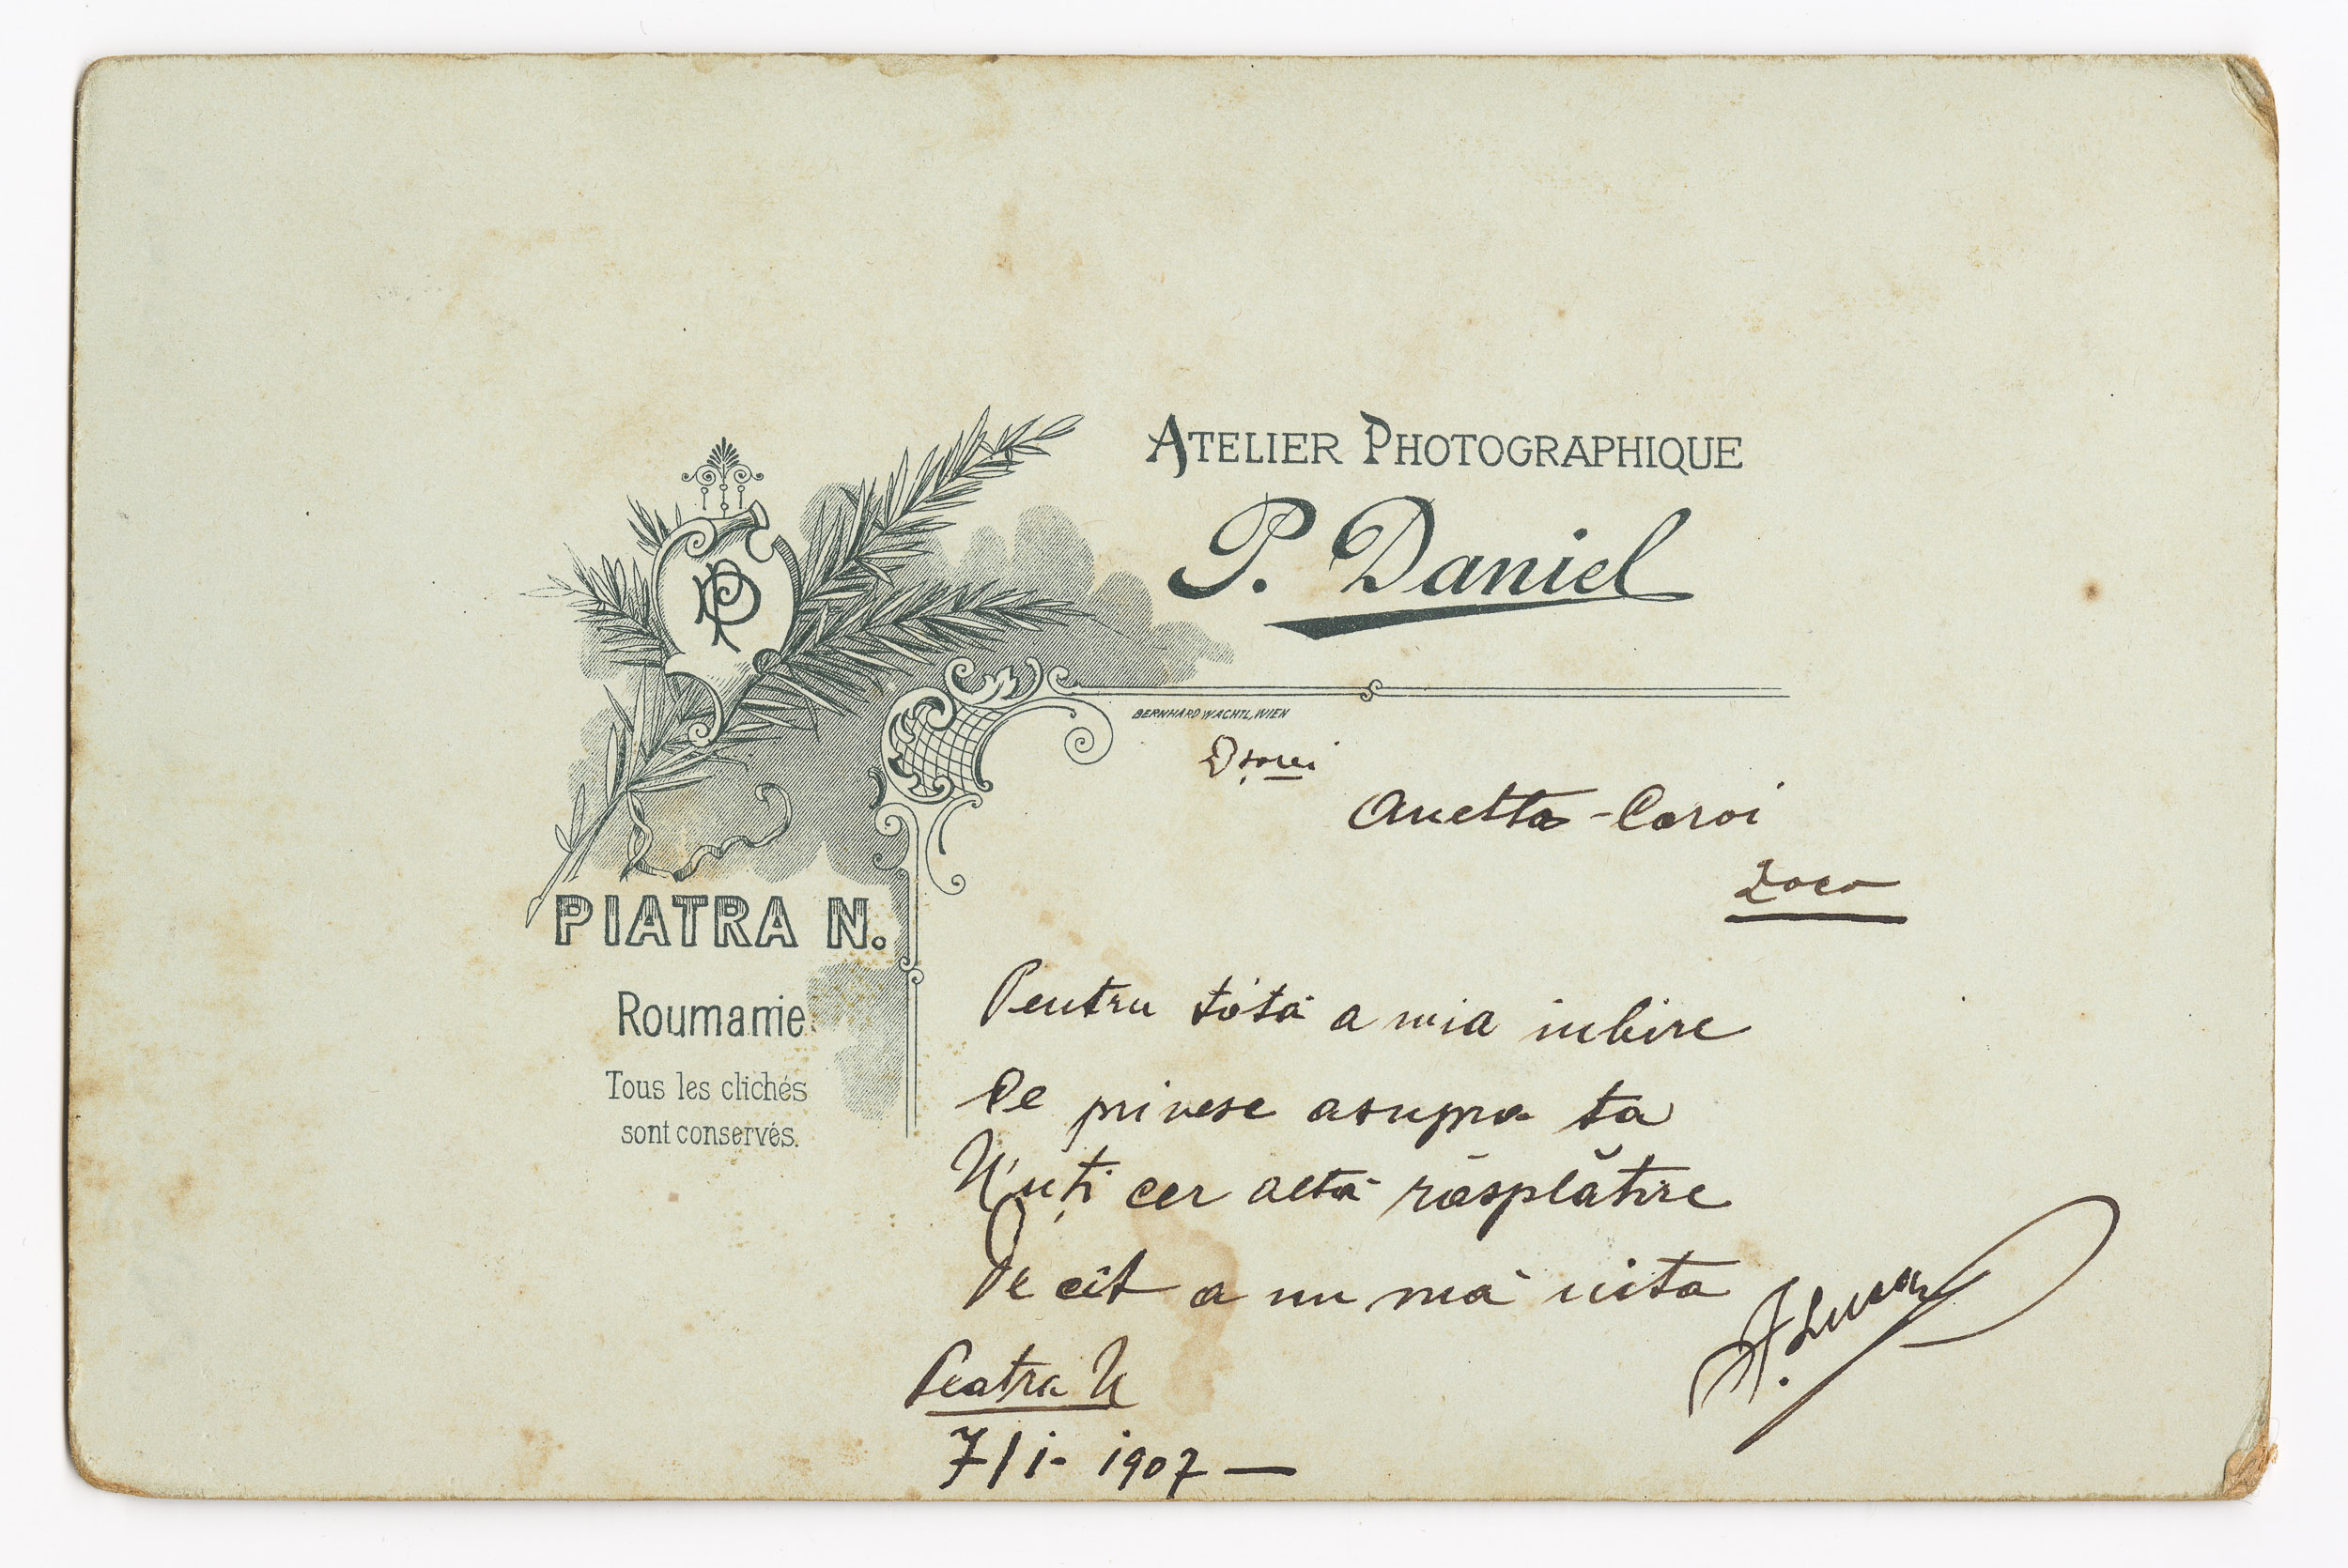 ATELIER PHOTOGRAPHIQUE
P. Daniel
BERNHARD WACHTL, WIEN
PIATRA N.
Roumanie
Tous les clichés
sont conservés.
Dșorei
Anetta - Caroi
Loco
Pentru tótă a mia iubire
Ce privesc asupra ta
N'uți cer altă răsplătire
De cît a nu mă uita
Peatra N
7/i- 1907 —